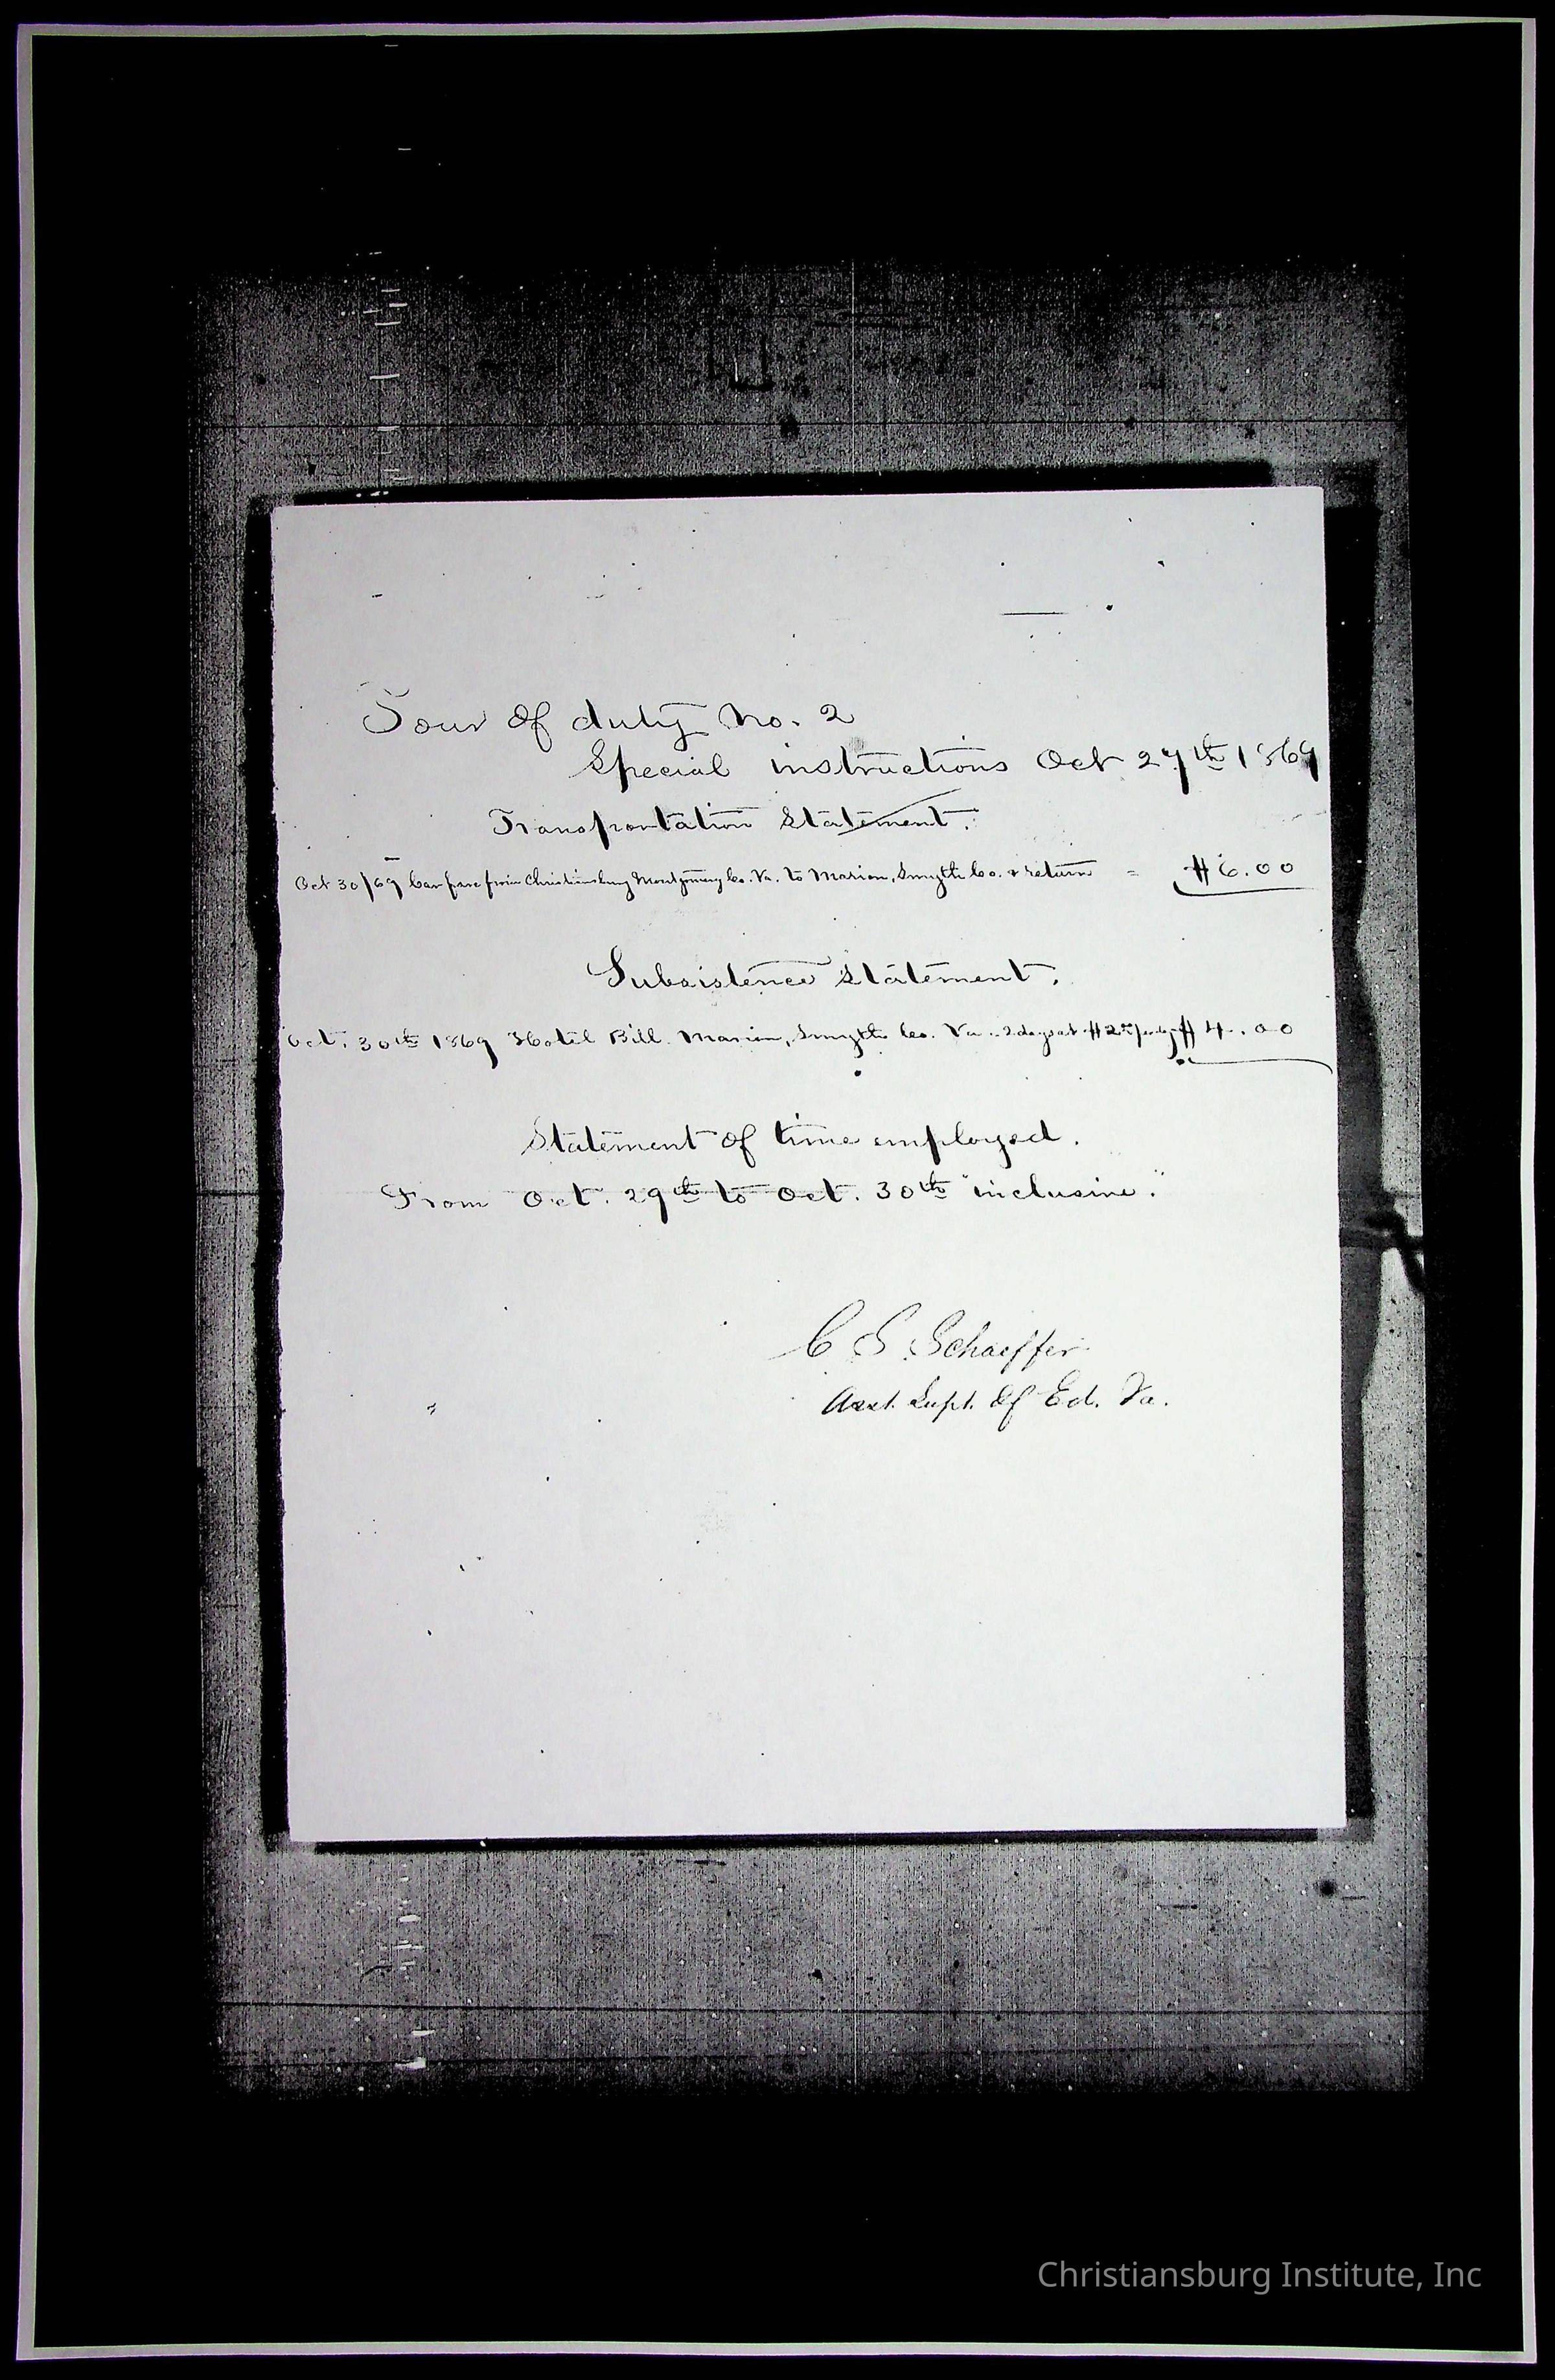 Tour of duty No. 2
Special instructions Oct 27th 1869
Transportation Statement.
Oct 30/69 Car fare from Christiansburg Montgomery Co. Va. to Marion, Smyth Co. & return = $6.00
Subsistence Statement.
Oct. 30th 1869 Hotel Bill Marion, Smyth Co. Va. 2 days at $2.00 per day $4.00
Statement of time employed.
From Oct. 29th to Oct. 30th "inclusive."
C S Schaeffer
Asst. Supt. Of Ed. Va.
Christiansburg Institute, Inc